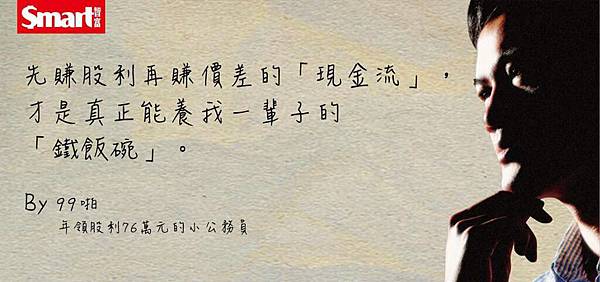 Smart智富
先賺股利再賺價差的「現金流」，
才是真正能養我一輩子的
「鐵飯碗」。
By 99啪
年領股利76萬元的小公務員